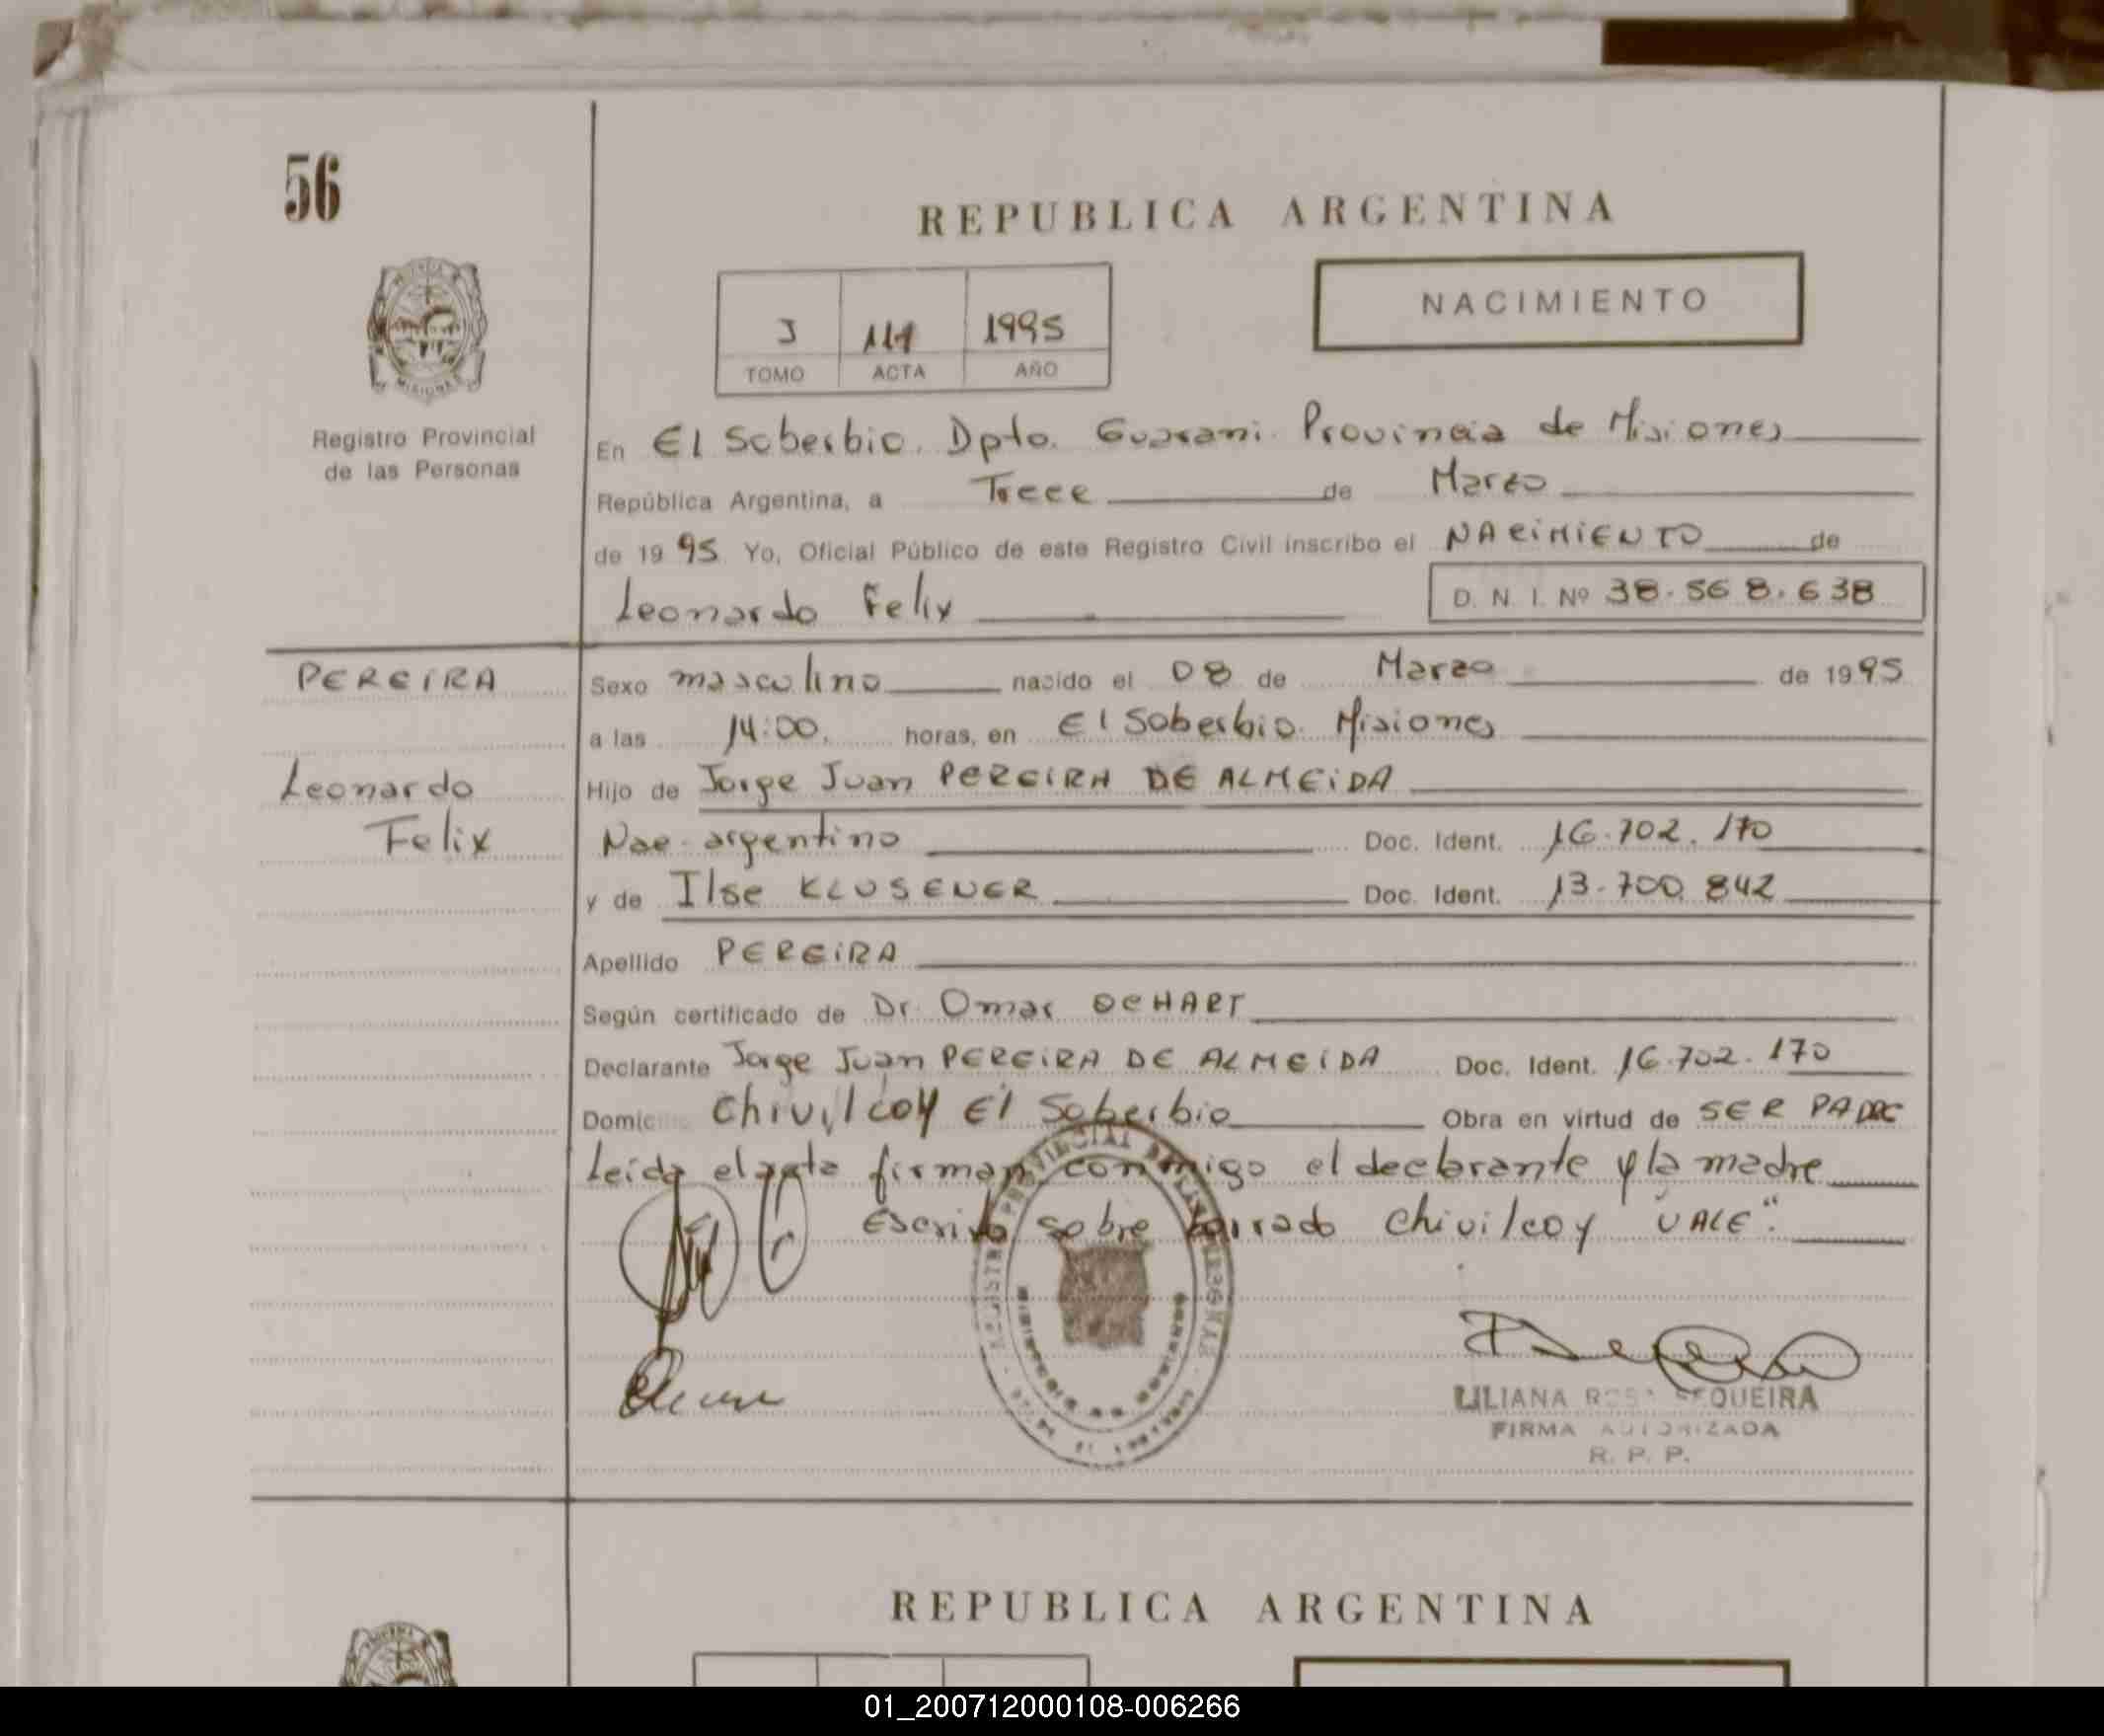 56
REPUBLICA ARGENTINA
NACIMIENTO
J 111 1995
TOMO ACTA AÑO
MISIONES
Registro Provincial
de las Personas
En El Soberbio. Dpto. Guarani. Provincia de Misiones
República Argentina, a Trece de Marzo
de 1995 Yo, Oficial Público de este Registro Civil inscribo el NACIMIENTO de
Leonardo Felix
D. N. I. Nº 38.568.638
PEREIRA
Sexo masculino nacido el 08 de Marzo de 1995
a las 14:00. horas, en El Soberbio. Misiones
Leonardo
Hijo de Jorge Juan PEREIRA DE ALMEIDA
Felix
Nac. argentino Doc. Ident. 16.702.170
y de Ilse KLUSENER Doc. Ident. 13.700.842
Apellido PEREIRA
Según certificado de Dr. Omar OCHART
Declarante Jorge Juan PEREIRA DE ALMEIDA Doc. Ident. 16.702.170
Domic Chivilcoy El Soberbio Obra en virtud de SER PADRE
Leida el acta firman conmigo el declarante y la madre
Escrito sobre borrado Chivilcoy "VALE".
REGISTRO PROVINCIAL DE LAS PERSONAS
MINISTERIO DE GOBIERNO
LILIANA ROSA SEQUEIRA
FIRMA AUTORIZADA
R. P. P.
REPUBLICA ARGENTINA
01_200712000108-006266